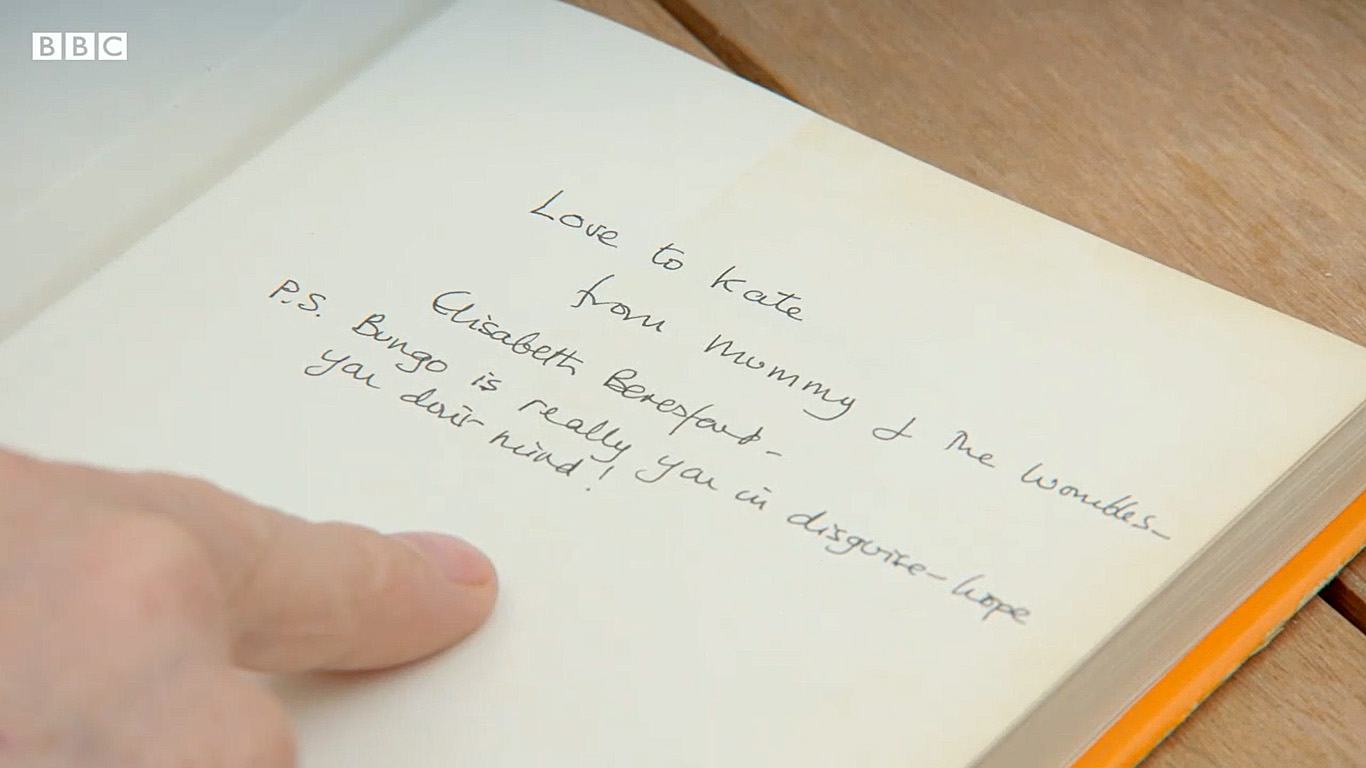 BBC
Love to Kate
from Mummy & The Wombles –
Elisabeth Beresford –
P.S. Bungo is really you in disguise – hope
you don't mind!